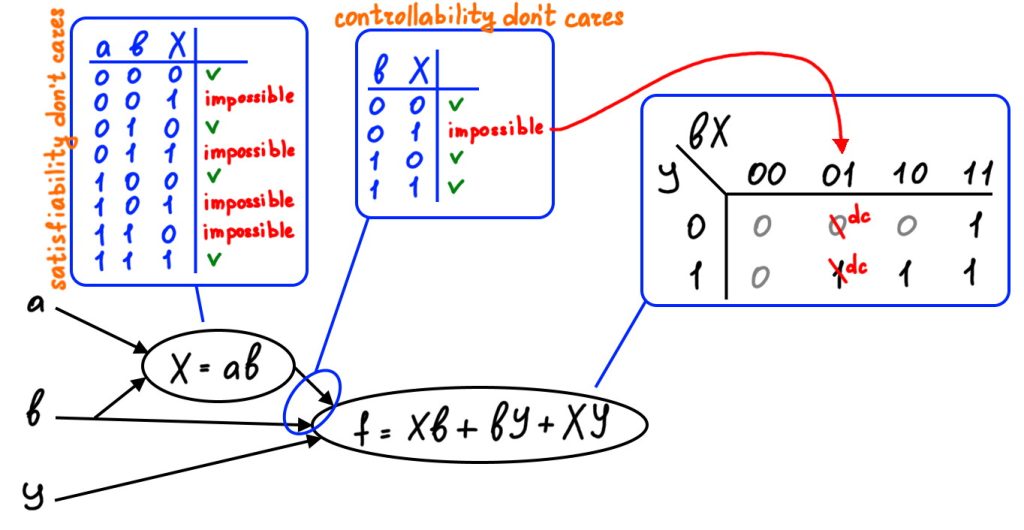 satisfiability don't cares
a b X
0 0 0 ✓
0 0 1 impossible
0 1 0 ✓
0 1 1 impossible
1 0 0 ✓
1 0 1 impossible
1 1 0 impossible
1 1 1 ✓
controllability don't cares
b X
0 0 ✓
0 1 impossible
1 0 ✓
1 1 ✓
bX
y 00 01 10 11
0 0 0 dc 0 1
1 0 1 dc 1 1
a
X = ab
b
f = Xb + by + Xy
y